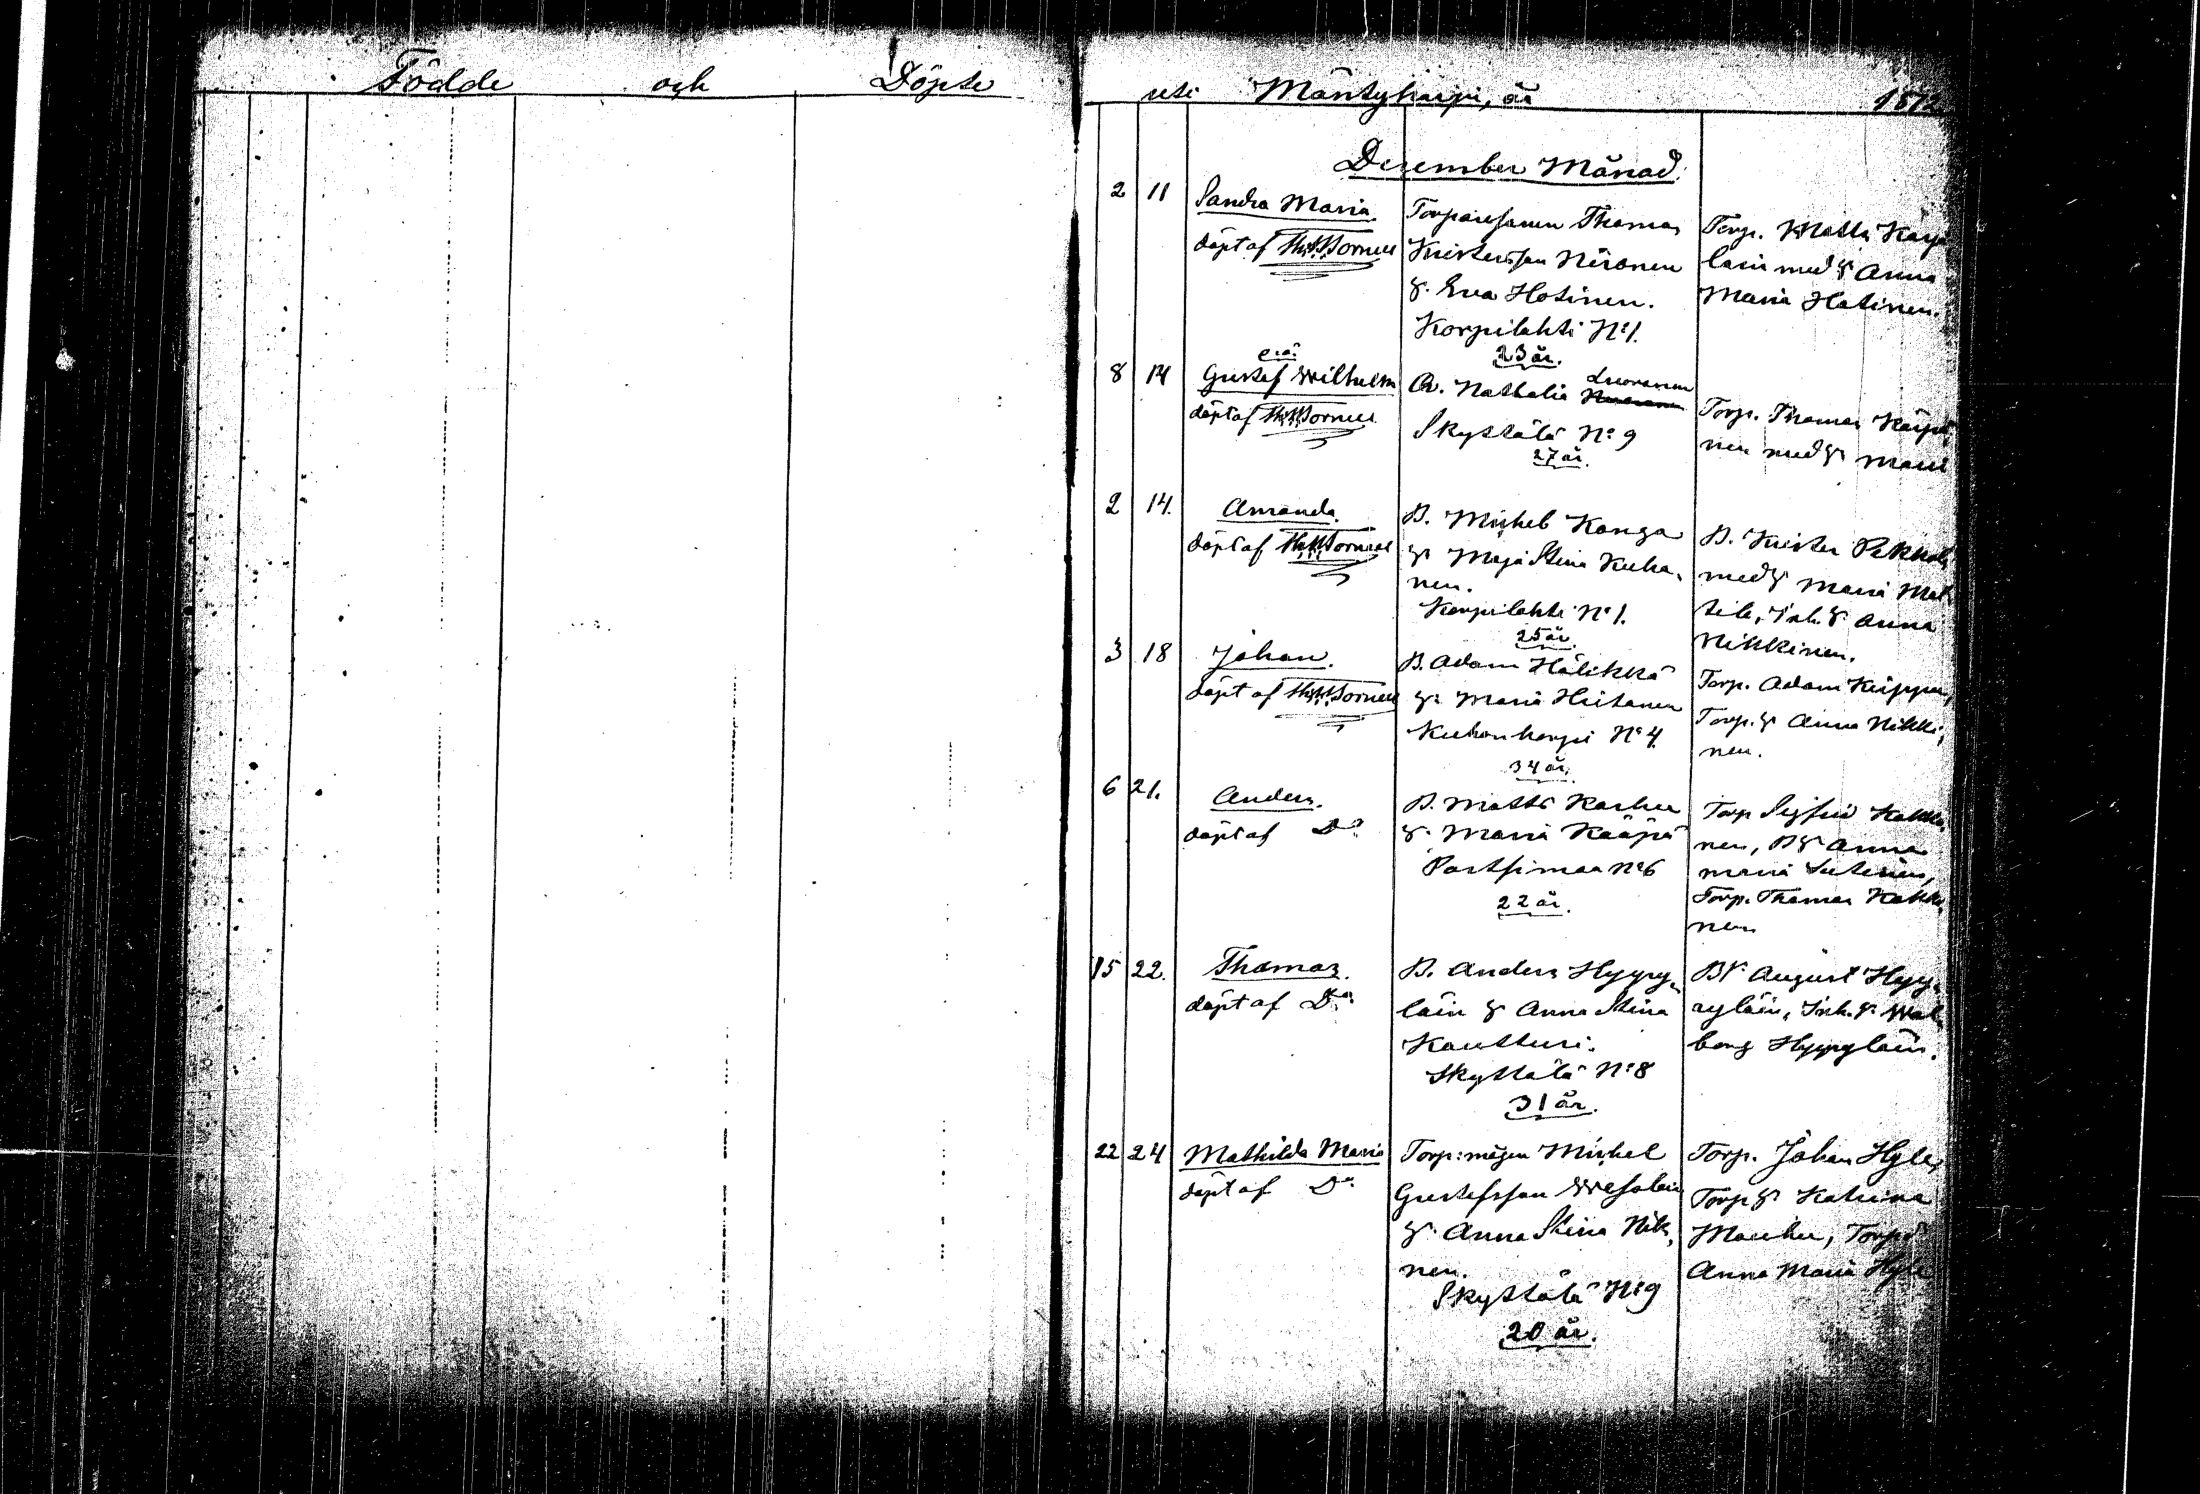 Födde och Döpte
uti Mäntyharju, år 1872
December Månad.
2 11 Sandra Maria.
döpt af
Torparesonen Thomas
Kristersson Nironen
& Eva Hotinen.
Korpilahti N:o 1.
23 år.
Torp. Matts Karja
lain med & Anna
Maria Hotinen.
8 14 e.ä.
Gustaf Wilhelm
döpt af
Nathalia Luoranen
Skyttälä N:o 9
27 år.
Torp. Thomas
nen med & Maria
2 14. Amanda.
döpt af
B. Michel Kanga
& Maja Stina Kuha,
nen.
Korpilahti N:o 1.
25 år.
B. Krister
med & Maria Mat
tila, Inh. & Anna
Nikkinen.
3 18 Johan.
döpt af
B. Adam Hälikkä
& Maria Hiitanen
Kuhanharju N:o 4.
34 år.
Torp. Adam
Torp. & Anna Nikki,
nen.
6 21. Anders.
döpt af D:o
B. Matts Karhu
& Maria Kääpä
Partsimaa N:o 6
22 år.
Torp Sigfrid
nen, B & Anna
Maria
Torp. Thomas
nen
15 22. Thomas.
döpt af D:o
B. Anders Hyyry,
läin & Anna Stina
Kautturi.
Skyttälä N:o 8
31 år.
August Hyy,
ryläin, Inh. & Wal
borg Hyyryläin.
22 24 Mathilda Maria
döpt af D:o
Torp: mågen Michel
Gustafsson Wesalain
& Anna Stina Nik,
nen.
Skyttälä N:o 9
20 år.
Torp. Johan Hyle,
Torp & Katrina
Mauhu, Torp &
Anna Maria Hyle